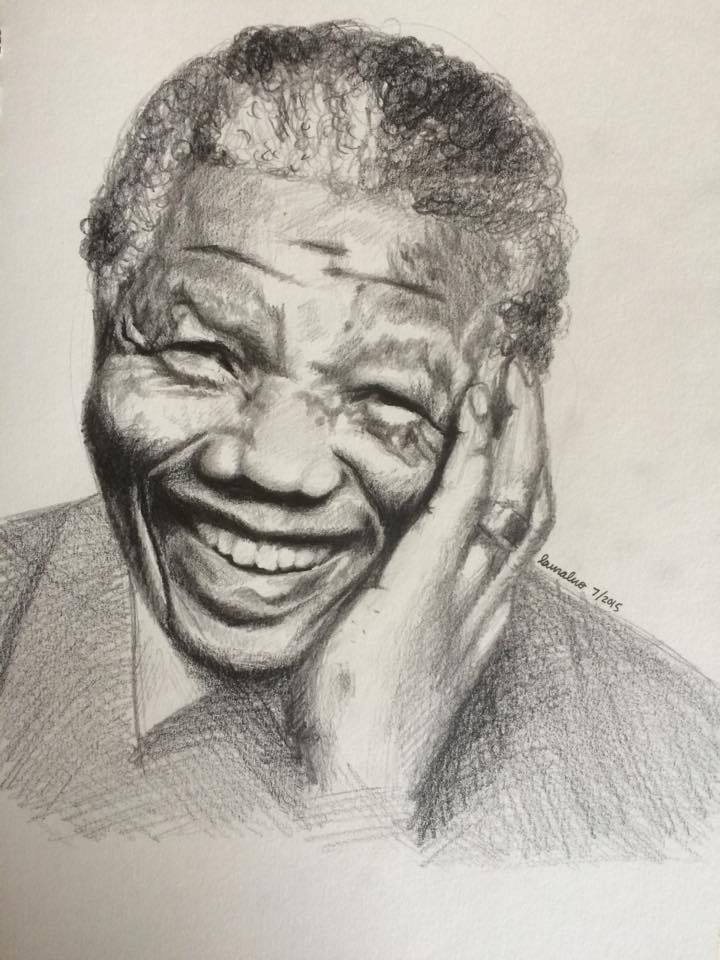 lauraluo 7/2015